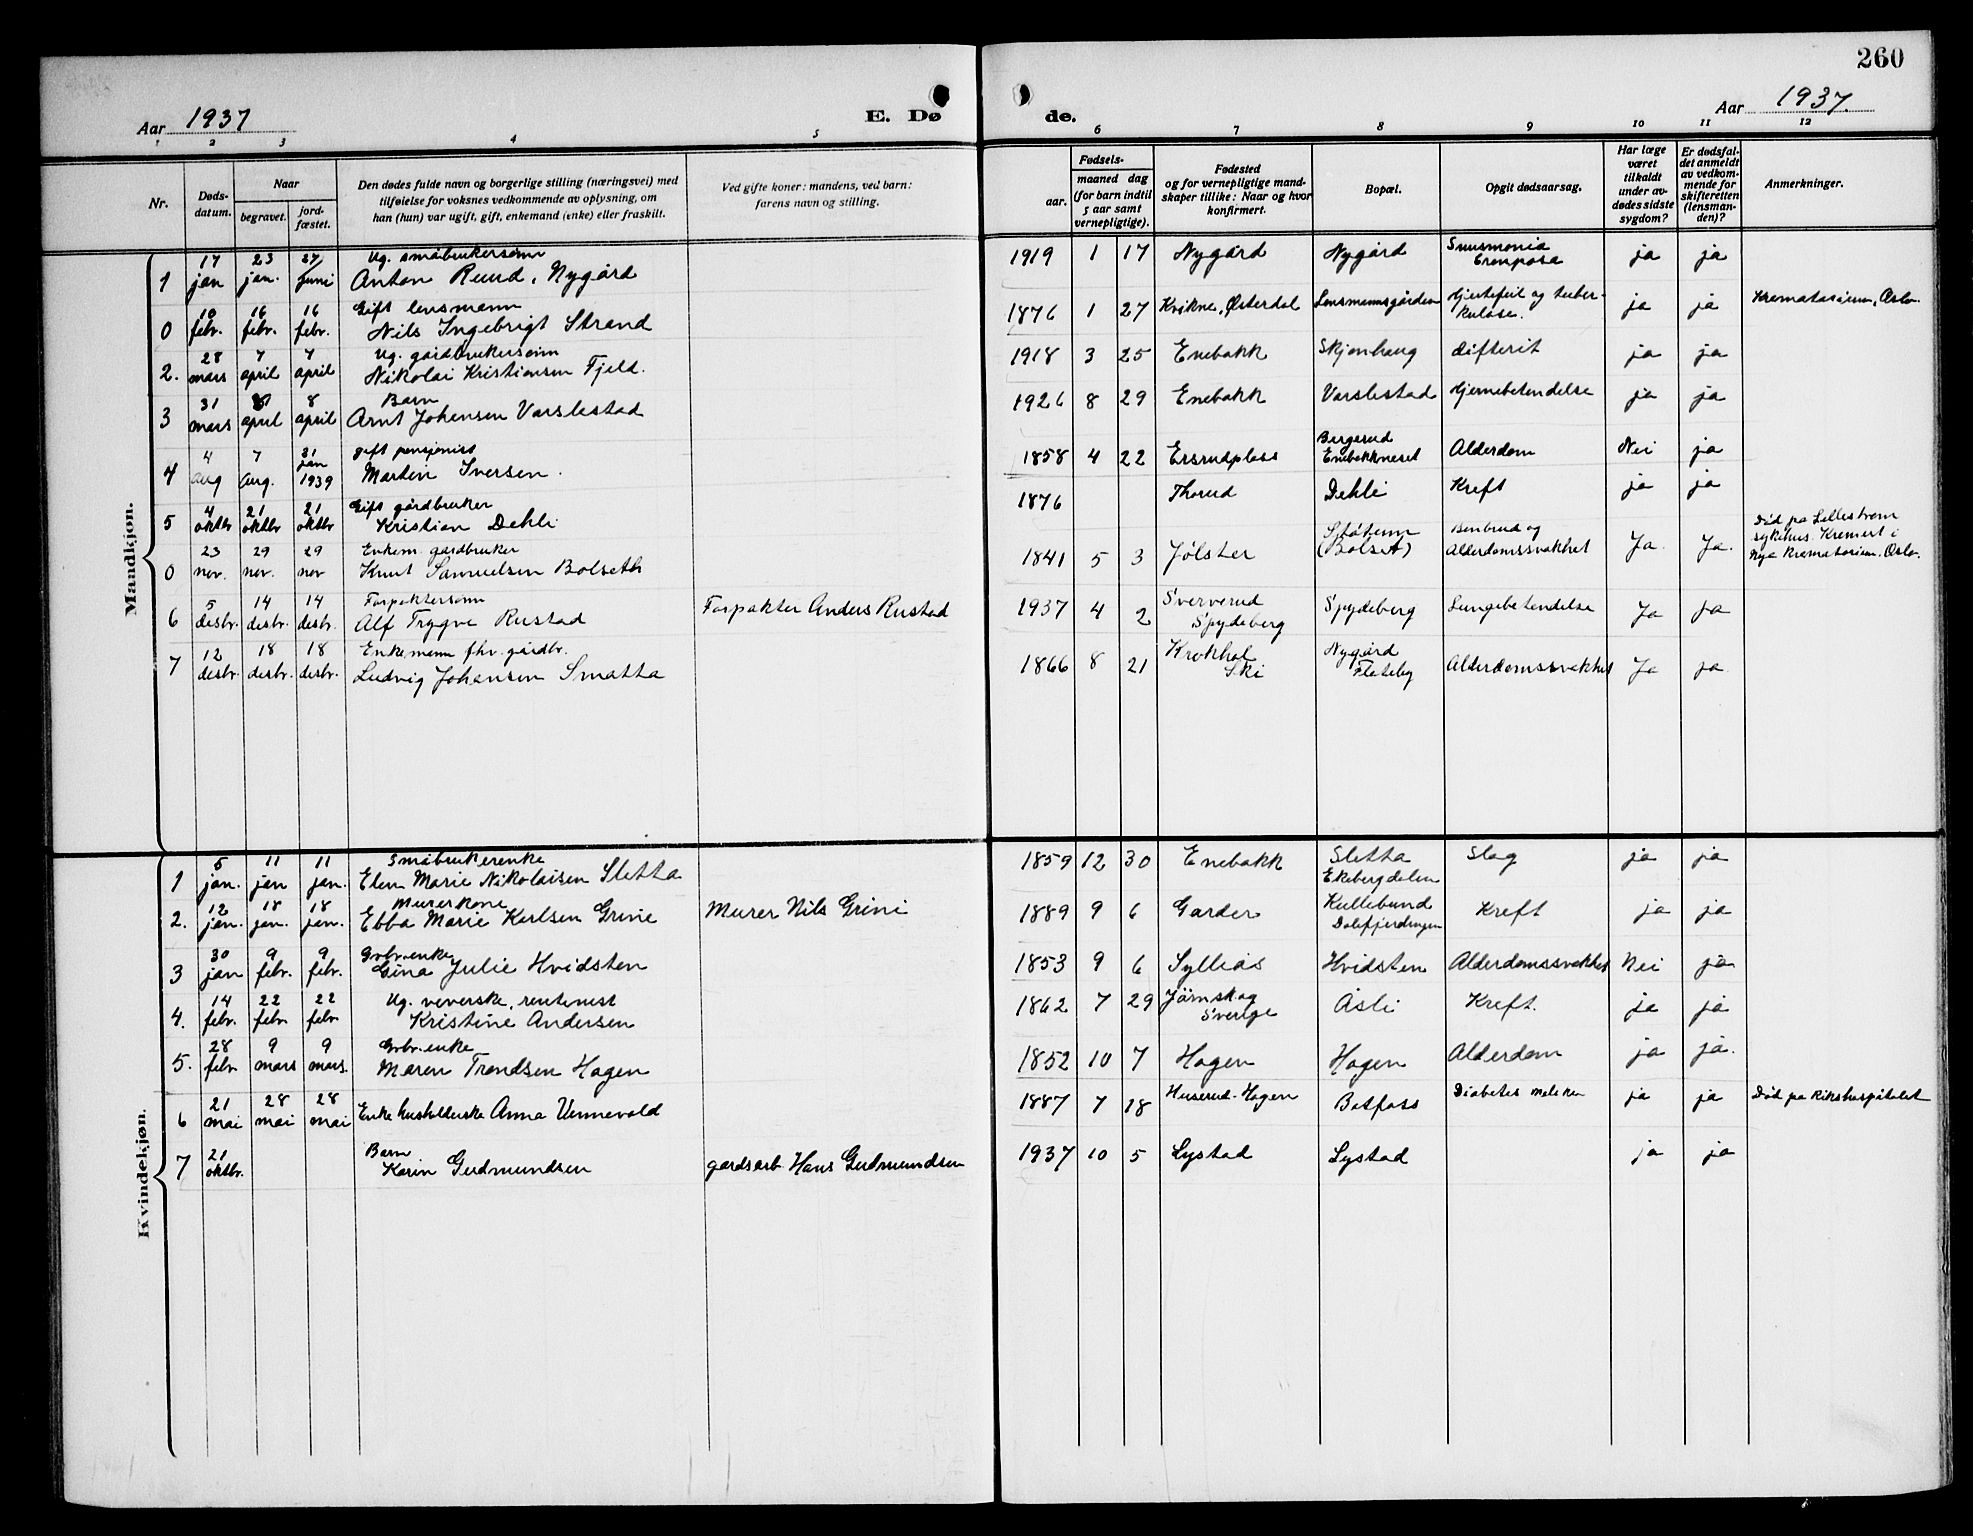 260
Aar 1937
E. Dø
de.
Aar 1937.
1 2 3 4 5 6 7 8 9 10 11 12
Nr.
Døds-
datum.
Naar
begravet.
jord-
fæstet.
Den dødes fulde navn og borgerlige stilling (næringsvei) med
tilføielse for voksnes vedkommende av oplysning, om
han (hun) var ugift, gift, enkemand (enke) eller fraskilt.
Ved gifte koner: mandens, ved barn:
farens navn og stilling.
Fødsels-
aar.
maaned dag
(for barn indtil
5 aar samt
vernepligtige).
Fødested
og for vernepligtige mand-
skaper tillike: Naar og hvor
konfirmert.
Bopæl.
Opgit dødsaarsag.
Har læge
været
tilkaldt
under av-
dødes sidste
sygdom?
Er dødsfal-
det anmeldt
av vedkom-
mende for
skifteretten
(lensman-
den)?
Anmerkninger.
Mandkjøn.
17 23 27/ Ug. småbrukersønn
1 jan jan. juni Anton Ruud, Nygård 1919 1 17 Nygård Nygård ja ja
10 16 16 Gift lensmann
0 febr. febr. febr. Nils Ingebrigt Strand 1876 1 27 Kvikne, Østerdal Lensmannsgården Hjertefeil og tuber-
kulose. ja ja Krematorium, Oslo.
28 7 7 Ug. gårdbrukersønn
2. mars april april Nikolai Kristiansen Fjeld. 1918 3 25 Enebakk Skjønhaug difterit ja ja
31 8 8 Barn
3 mars april april Arnt Johansen Varslestad 1926 8 29 Enebakk Varslestad Hjernebetendelse ja ja
4 7 31 jan gift pensjonist
4 aug aug. 1939 Martin Iversen. 1858 4 22 Ersrudplass Bergerud
Enebakkneset Alderdom Nei ja
4 21 21 Gift gårdbruker
5 oktbr oktbr oktbr Kristian Dehli 1876 Thorud Dehli Kreft ja ja
23 29 29 Enkem. gårdbruker
0 nov. nov. nov Knut Samuelsen Bolseth 1841 5 3 Jølster
(Bolset) Benbrud og
Alderdomssvakhet Ja. Ja. Død på Lillestrøm
sykehus. Kremert i
Nye Krematorium, Oslo.
5 14 14 Forpaktersønn
6 desbr. desbr. desbr. Alf Trygve Rustad Forpakter Anders Rustad 1937 4 2 Sververud
Spydeberg Spydeberg Lungebetendelse Ja ja
12 18 18 Enkemann fhv. gårdbr.
7 desbr. desbr. desbr. Ludvig Johansen Smatta 1866 8 21 Krokhol
Ski Nygård
Flateby Alderdomssvakhet Ja ja
Kvindekjøn.
5 11 11 Småbrukerenke
1 jan. jan jan. Elen Marie Nikolaisen Sletta 1859 12 30 Enebakk Sletta
Ekebergdalen Slag ja ja
12 18 18 Murerkone
2. jan. jan. jan. Ebba Marie Karlsen Grini Murer Nils Grini 1889 9 6 Garder Kullebund
Dalefjerdingen Kreft ja ja
30 9 9 Grbr.enke
3 jan febr. febr. Gina Julie Hvidsten 1853 9 6 Sylliås Hvidsten Alderdomssvakhet Nei ja
14 22 22 Ug. veverske, rentenist
4. febr. febr febr Kristine Andersen 1862 7 29 Järnskog
Sverige Åsli Kreft. ja ja
28 9 9 Grbr.enke
5. febr mars mars. Maren Trondsen Hagen 1852 10 7 Hagen Hagen Alderdom ja ja.
21 28 28
6 mai mai mai Enke husholderske Anna Vennevold 1887 7 18 Huserud-Hagen Botfoss Diabetes ja ja Død på Rikshospitalet
21 Barn
7 oktbr. Karin Gudmundsen gardsarb. Hans Gudmundsen 1937 10 5 Lystad Lystad ja ja